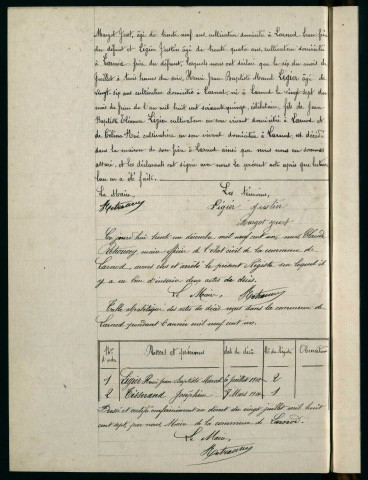 Margot Just, âgé de trente neuf ans cultivateur domicilié à Larnod, beau frère
du défunt et Légier Justin âgé de trente quatre ans cultivateur domicilié
à Larnod frère du défunt, lesquels nous ont déclaré que le six du mois de
Juillet à trois heures du soir, Henri Jean Baptiste Marcel Légier âgé de
vingt-six ans cultivateur domicilié à Larnod, né à Larnod le vingt sept du
mois de juin de l'an mil huit cent soixante quinze, célibataire, fils de Jean
Baptiste Légier cultivateur en son vivant domicilié à Larnod et
de Céline cultivatrice en son vivant domiciliée à Larnod, est décédé
dans la maison de son frère à Larnod ainsi que nous nous en sommes
assuré, et les déclarants ont signé avec nous le présent acte après que lecture
leur en a été faite.
Le Maire, Les témoins,
Légier Justin
Margot Just
Ce jourd'hui trente un décembre mil neuf cent un, nous
maire officier de l'état civil de la commune de
Larnod, avons clos et arrêté le présent Registre sur lequel il
y a eu lieu d'inscrire deux actes de décès.
Le Maire,
Table alphabétique des actes de décès reçus dans la commune de
Larnod pendant l'année mil neuf cent un.
Nos d'ordre Noms et prénoms date du décès Nos du Registre Observations
1 Légier Henri Jean Baptiste Marcel 6 Juillet 1901 2
2 Tisserand Joséphine 8 Mars 1901 1
Dressé et certifié conformément au décret du vingt juillet mil huit
cent sept par nous Maire de la commune de Larnod.
Le Maire